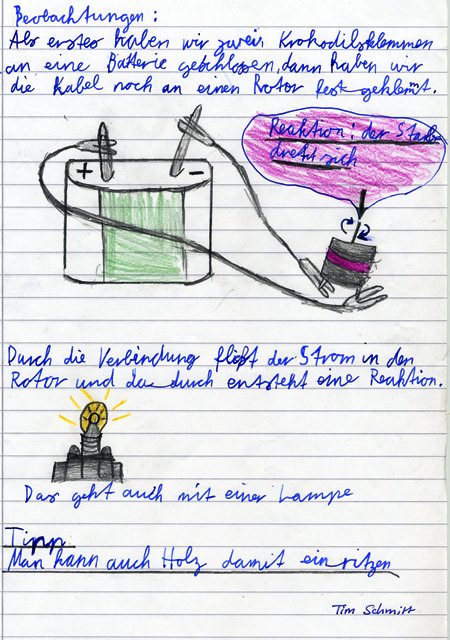 Beobachtungen:
Als erstes haben wir zwei Krokodilsklemmen
an eine Batterie geschlossen, dann haben wir
die Kabel noch an einen Rotor fest geklemt.
Reaktion: der Stab
dreht sich
+ -
Durch die Verbindung fließt der Strom in den
Rotor und da durch entsteht eine Reaktion.
Das geht auch mit einer Lampe
Tipp
Man kann auch Holz damit einritzen
Tim Schmitt